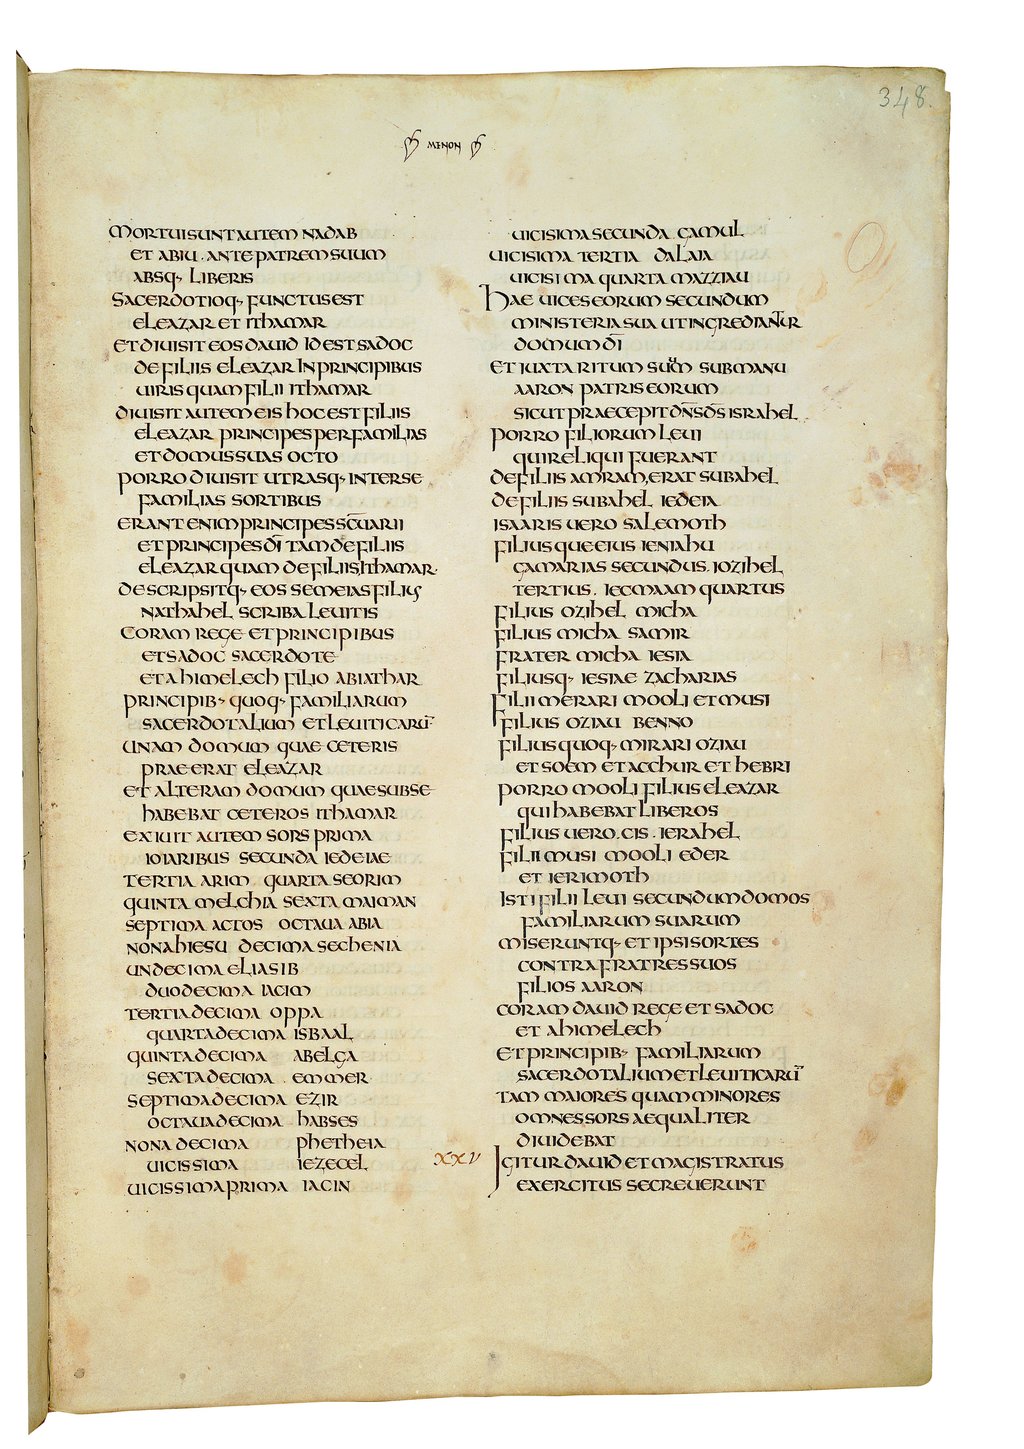 348.
MENON
MORTUI SUNT AUTEM NADAB
ET ABIU · ANTE PATREM SUUM
ABSQ· LIBERIS
SACERDOTIOQ· FUNCTUS EST
ELEAZAR ET ITHAMAR
ET DIUISIT EOS DAUID ID EST SADOC
DE FILIIS ELEAZAR IN PRINCIPIBUS
UIRIS QUAM FILII ITHAMAR
DIUISIT AUTEM EIS HOC EST FILIIS
ELEAZAR PRINCIPES PER FAMILIAS
ET DOMUS SUAS OCTO
PORRO DIUISIT UTRASQ· INTER SE
FAMILIAS SORTIBUS
ERANT ENIM PRINCIPES SC̄UARII
ET PRINCIPES DĪ TAM DE FILIIS
ELEAZAR QUAM DE FILIIS ITHAMAR·
DESCRIPSITQ· EOS SEMEIAS FILIUS
NATHAHEL SCRIBA LEUITIS
CORAM REGE ET PRINCIPIBUS
ET SADOC SACERDOTE
ET AHIMELECH FILIO ABIATHAR
PRINCIPIB· QUOQ· FAMILIARUM
SACERDOTALIUM ET LEUITICARŪ
UNAM DOMUM QUAE CETERIS
PRAEERAT ELEAZAR
ET ALTERAM DOMUM QUAE SUB SE
HABEBAT CETEROS ITHAMAR
EXIUIT AUTEM SORS PRIMA
IOIARIBUS SECUNDA IEDEIAE
TERTIA ARIM QUARTA SEORIM
QUINTA MELCHIA SEXTA MAIMAN
SEPTIMA ACTOS OCTAUA ABIA
NONA HIESU DECIMA SECHENIA
UNDECIMA ELIASIB
DUODECIMA IACIM
TERTIADECIMA OPPA
QUARTADECIMA ISBAAL
QUINTADECIMA ABELGA
SEXTADECIMA EMMER
SEPTIMADECIMA EZIR
OCTAUADECIMA HABSES
NONADECIMA PHETHEIA
UICISSIMA IEZECEL
UICISSIMAPRIMA IACIN
UICISIMA SECUNDA GAMUL
UICISIMA TERTIA DALAIA
UICISIMA QUARTA MAZZIAU
HAE UICES EORUM SECUNDUM
MINISTERIA SUA UT INGREDIANTUR
DOMUM DĪ
ET IUXTA RITUM SUUM SUB MANU
AARON PATRIS EORUM
SICUT PRAECEPIT DN̄S DS̄ ISRAHEL
PORRO FILIORUM LEUI
QUI RELIQUI FUERANT
DE FILIIS AMRAM, ERAT SUBAHEL
DE FILIIS SUBAHEL IEDEIA
ISAARIS UERO SALEMOTH
FILIUSQUE EIUS IENIAHU
GAMARIAS SECUNDUS. IOZIHEL
TERTIUS. IECMAAM QUARTUS
FILIUS OZIHEL MICHA
FILIUS MICHA SAMIR
FRATER MICHA IESIA
FILIUSQ· IESIAE ZACHARIAS
FILII MERARI MOOLI ET MUSI
FILIUS OZIAU BENNO
FILIUS QUOQ· MIRARI OZIAU
ET SOEM ET ACCHUR ET HEBRI
PORRO MOOLI FILIUS ELEAZAR
QUI HABEBAT LIBEROS
FILIUS UERO. CIS. IERAHEL
FILII MUSI MOOLI EDER
ET IERIMOTH
ISTI FILII LEUI SECUNDUM DOMOS
FAMILIARUM SUARUM
MISERUNTQ· ET IPSI SORTES
CONTRA FRATRES SUOS
FILIOS AARON
CORAM DAUID REGE ET SADOC
ET AHIMELECH
ET PRINCIPIB· FAMILIARUM
SACERDOTALIUM ET LEUITICARŪ
TAM MAIORES QUAM MINORES
OMNES SORS AEQUALITER
DIUIDEBAT
XXV IGITUR DAUID ET MAGISTRATUS
EXERCITUS SECREUERUNT